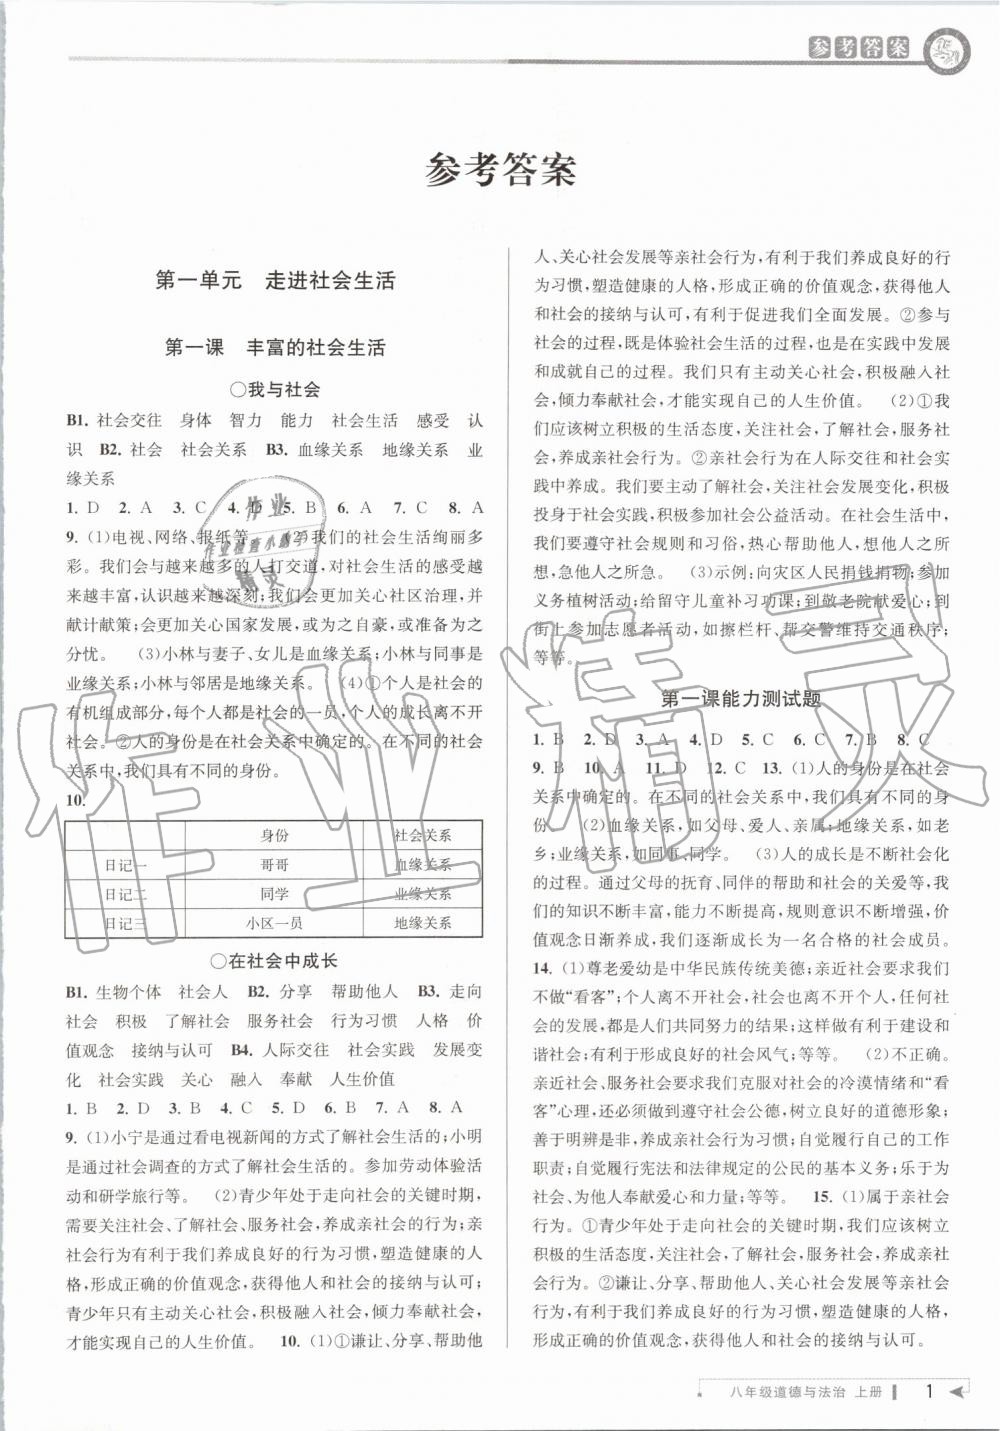 参考答案
参考答案
第一单元　走进社会生活
第一课　丰富的社会生活
○我与社会
B1. 社会交往　身体　智力　能力　社会生活　感受　认
识　B2. 社会　社会关系　B3. 血缘关系　地缘关系　业
缘关系
1. D　2. A　3. C　4. D　5. B　6. A　7. C　8. A
9. (1)电视、网络、报纸等。　(2)我们的社会生活绚丽多
彩。我们会与越来越多的人打交道,对社会生活的感受越
来越丰富,认识越来越深刻;我们会关心社区治理,并
献计献策;会更加关心国家发展,或为之自豪,或准备为之
分忧。　(3)小林与妻子、女儿是血缘关系;小林与同事是
业缘关系;小林与邻居是地缘关系。　(4)①个人是社会的
有机组成部分,每个人都是社会的一员,个人的成长离不开
社会。②人的身份是在社会关系中确定的。在不同的社会
关系中,我们具有不同的身份。
10.
身份　社会关系
日记一　哥哥　血缘关系
日记二　同学　业缘关系
日记三　小区一员　地缘关系
○在社会中成长
B1. 生物个体　社会人　B2. 分享　帮助他人　B3. 走向
社会　积极　了解社会　服务社会　行为习惯　人格　价
值观念　接纳与认可　B4. 人际交往　社会实践　发展变
化　社会实践　关心　融入　奉献　人生价值
1. B　2. D　3. B　4. C　5. D　6. B　7. A　8. A
9. (1)小宁是通过看电视新闻的方式了解社会生活的;小明
是通过社会调查的方式了解社会生活的。参加劳动体验活
动和研学旅行等。　(2)青少年处于走向社会的关键时期,
需要关注社会、了解社会、服务社会,养成亲社会的行为;亲
社会行为有利于我们养成良好的行为习惯,塑造健康的人
格,形成正确的价值观念,获得他人和社会的接纳与认可;
青少年只有主动关心社会,积极融入社会,倾力奉献社会,
才能实现自己的人生价值。　10. (1)①谦让、分享、帮助他
人、关心社会发展等亲社会行为,有利于我们养成良好的行
为习惯,塑造健康的人格,形成正确的价值观念,获得他人
和社会的接纳与认可,有利于促进我们全面发展。②参与
社会的过程,既是体验社会生活的过程,也是在实践中发展
和成就自己的过程。我们只有主动关心社会,积极融入社
会,倾力奉献社会,才能实现自己的人生价值。　(2)①我
们应该树立积极的生活态度,关注社会,了解社会,服务社
会,养成亲社会行为。②亲社会行为在人际交往和社会实
践中养成。我们要主动了解社会,关注社会发展变化,积极
投身于社会实践,积极参加社会公益活动。在社会生活中,
我们要遵守社会规则和习俗,热心帮助他人,想他人之所
想,急他人之所急。　(3)示例:向灾区人民捐钱捐物;参加
义务植树活动;给留守儿童补习功课;到敬老院献爱心;到
街上参加志愿者活动,如擦栏杆、帮交警维持交通秩序;
等等。
第一课能力测试题
1. B　2. D　3. A　4. D　5. C　6. C　7. B　8. C
9. B　10. A　11. D　12. C　13. (1)人的身份是在社会
关系中确定的。在不同的社会关系中,我们具有不同的身
份。　(2)血缘关系,如父母、爱人、亲属;地缘关系,如老
乡;业缘关系,如同事、同学。　(3)人的成长是不断社会化
的过程。通过父母的抚育、同伴的帮助和社会的关爱等,我
们的知识不断丰富,能力不断提高,规则意识不断增强,价
值观念日渐养成,我们逐渐成长为一名合格的社会成员。
14. (1)尊老爱幼是中华民族传统美德;亲近社会要求我们
不做“看客”;个人离不开社会,社会也离不开个人,任何社
会的发展,都是人们共同努力的结果;这样做有利于建设和
谐社会;有利于形成良好的社会风气;等等。　(2)不正确。
亲近社会、服务社会要求我们克服对社会的冷漠情绪和“看
客”心理,还必须做到遵守社会公德,树立良好的道德形象;
善于明辨是非,养成亲社会行为习惯;自觉履行自己的工作
职责;自觉履行宪法和法律规定的公民的基本义务;乐于为
社会、为他人奉献爱心和力量;等等。　15. (1)属于亲社会
行为。①青少年处于走向社会的关键时期,我们应该树立
积极的生活态度,关注社会,了解社会,服务社会,养成亲社
会行为。②谦让、分享、帮助他人、关心社会发展等亲社会
行为,有利于我们养成良好的行为习惯,塑造健康的人格,
形成正确的价值观念,获得他人和社会的接纳与认可。
八年级道德与法治 上册　1
作业
作业检查小助手
精灵
作业精灵